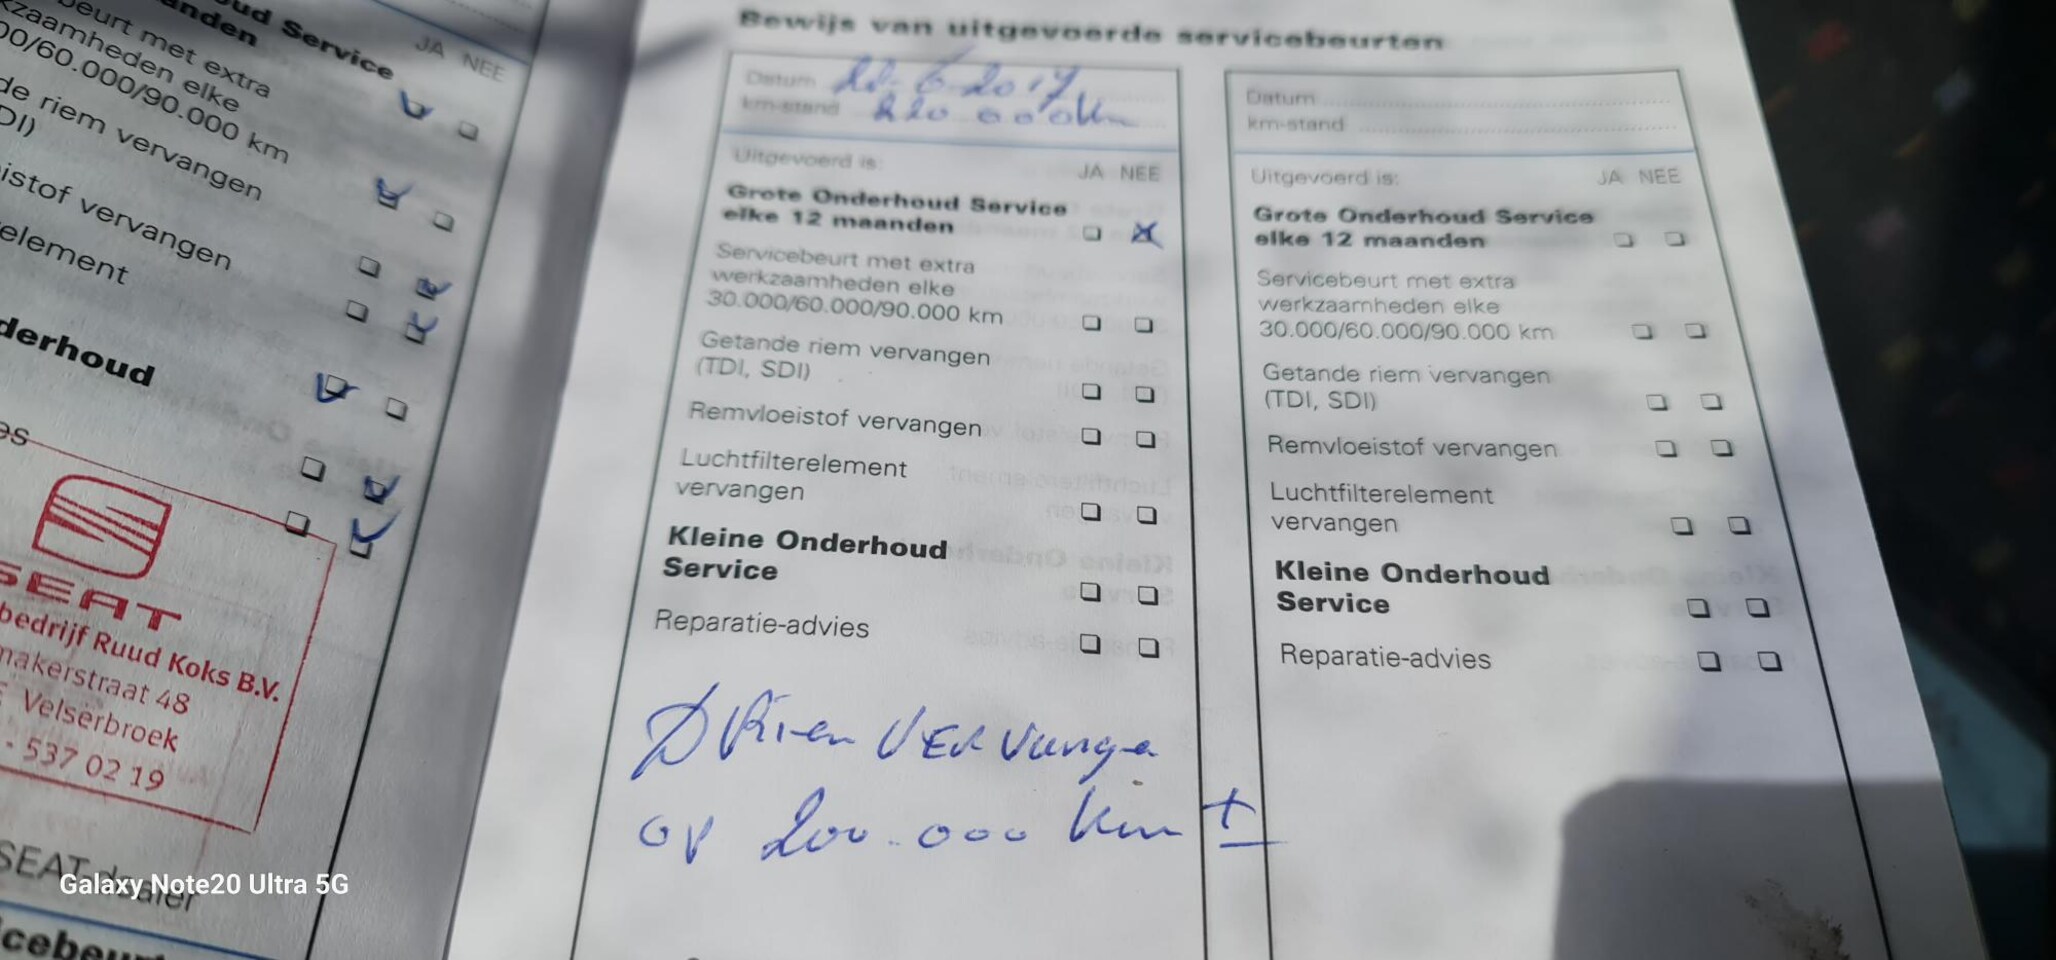 oud Service
anden
JA NEE
beurt met extra
kzaamheden elke
00/60.000/90.000 km
de riem vervangen
DI)
istof vervangen
element
derhoud
es
SEAT
bedrijf Ruud Koks B.V.
makerstraat 48
Velserbroek
- 537 02 19
SEAT dealer
icebeurt
Bewijs van uitgevoerde servicebeurten
Datum 22-6-2017
km-stand 220.000km
Uitgevoerd is: JA NEE
Grote Onderhoud Service
elke 12 maanden
Servicebeurt met extra
werkzaamheden elke
30.000/60.000/90.000 km
Getande riem vervangen
(TDI, SDI)
Remvloeistof vervangen
Luchtfilterelement
vervangen
Kleine Onderhoud
Service
Reparatie-advies
D Riem VERVange
op 200.000 km ±
Datum
km-stand
Uitgevoerd is: JA NEE
Grote Onderhoud Service
elke 12 maanden
Servicebeurt met extra
werkzaamheden elke
30.000/60.000/90.000 km
Getande riem vervangen
(TDI, SDI)
Remvloeistof vervangen
Luchtfilterelement
vervangen
Kleine Onderhoud
Service
Reparatie-advies
Galaxy Note20 Ultra 5G